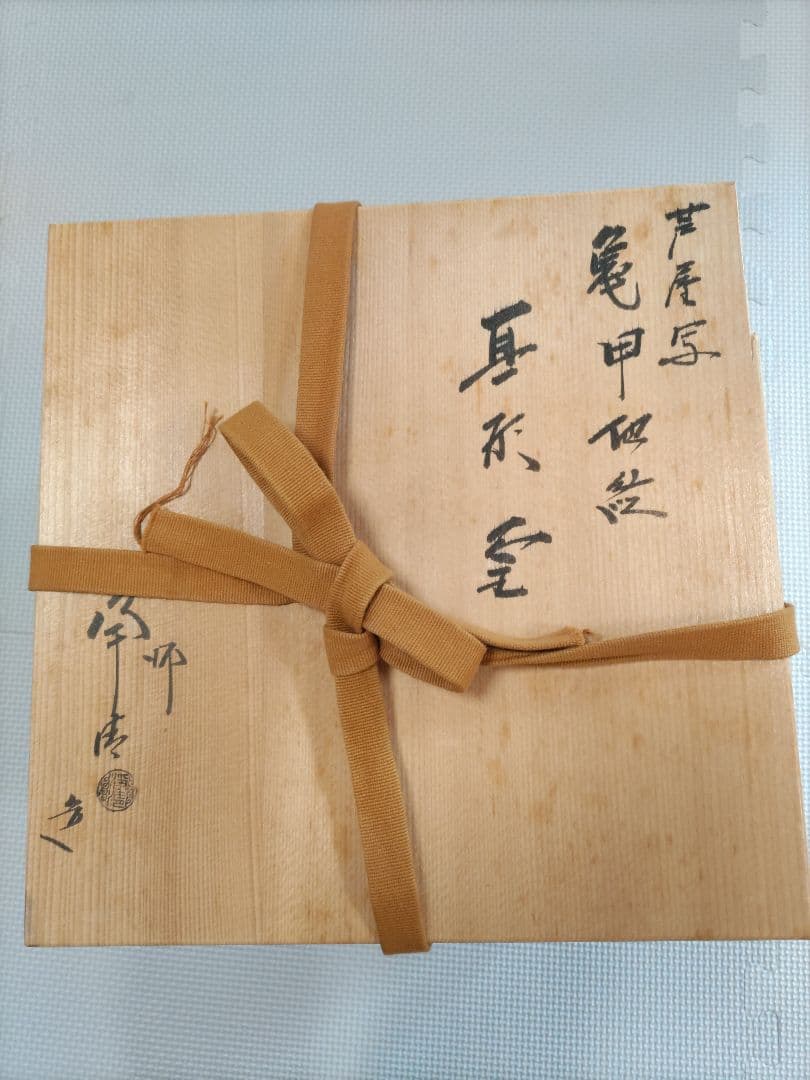 芦屋写
亀甲地紋
真形釜
師
清